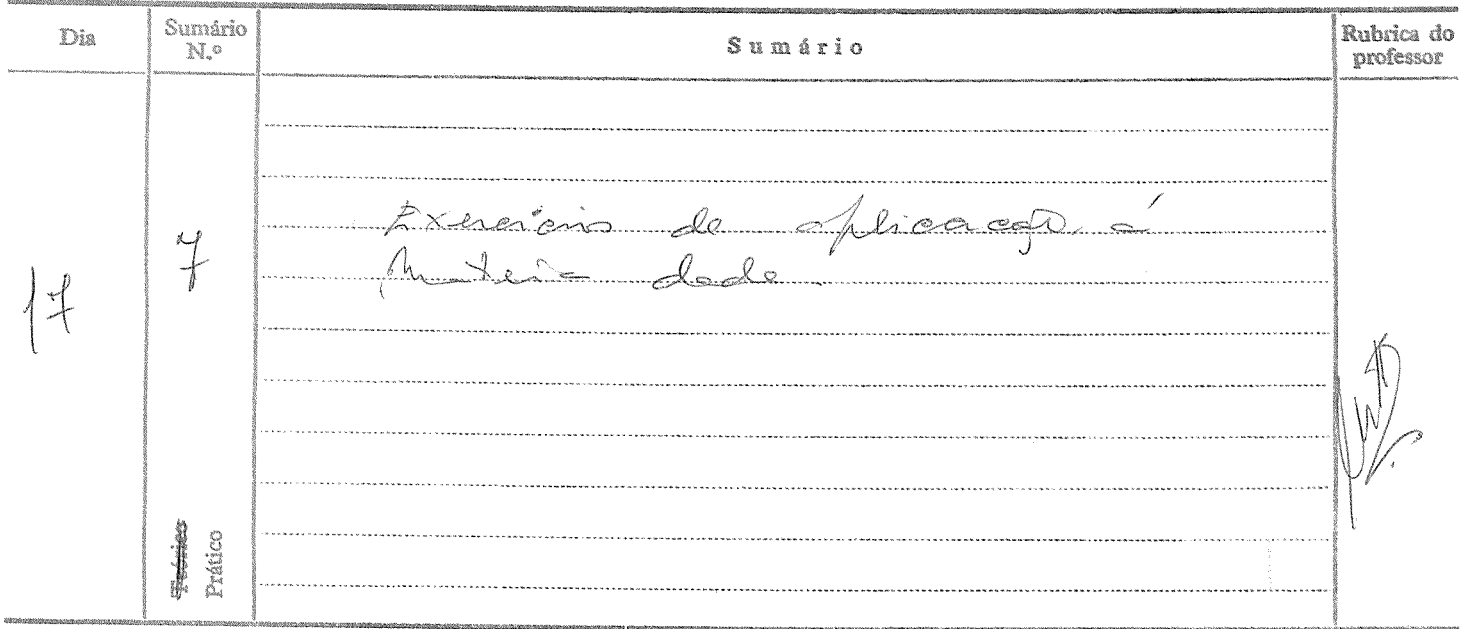 Dia
Sumário N.º
Sumário
Rubrica do professor
17
7
Exercícios de aplicação á
Matéria dada
Teórico
Prático